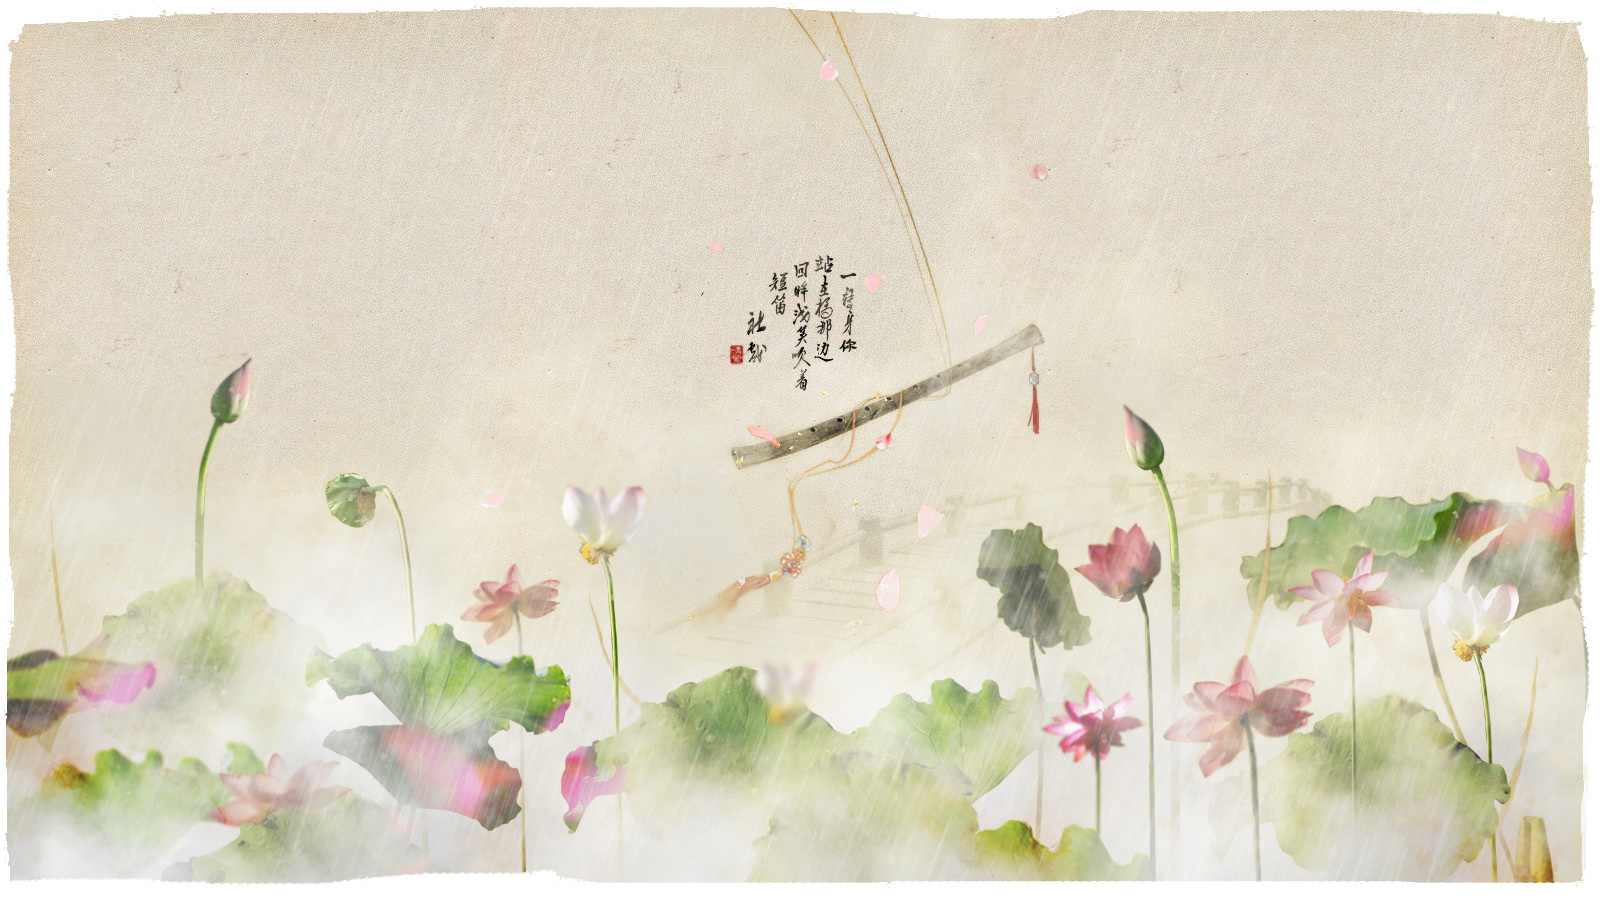 一转身你
站在桥那边
回眸浅笑吹着
短笛
社戏